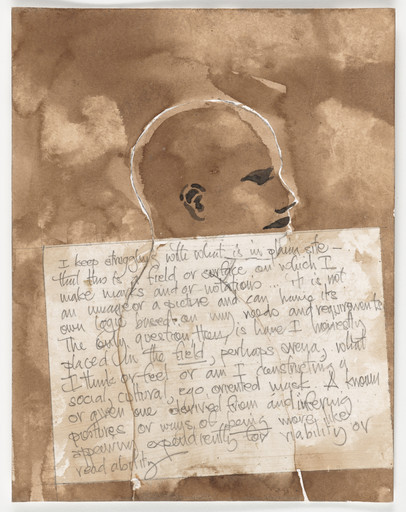 I keep struggling with what is in plain site –
that this is a field or surface on which I
make marks and or notations ... it is not
an image or a picture and can have its
own logic based on my needs and requirements
The only question then, is have I honestly
placed in the field, perhaps arena, what
I think or feel or am I constructing a
social, cultural, ego, oriented mask. A known
or given one derived from and infering
postures or ways of being more like
appearing expediently for viability or
readability